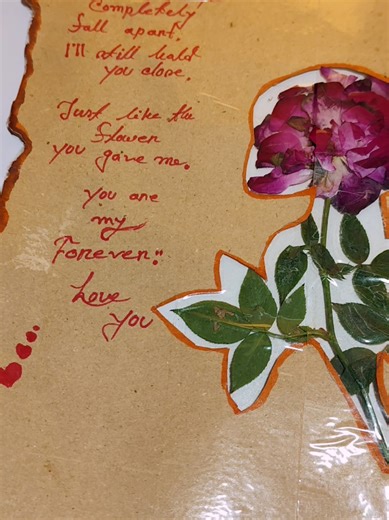 Completely
fall apart,
I'll still hold
you close,
Just like the
flower
you gave me.
you are
my
Forever!!
Love
you